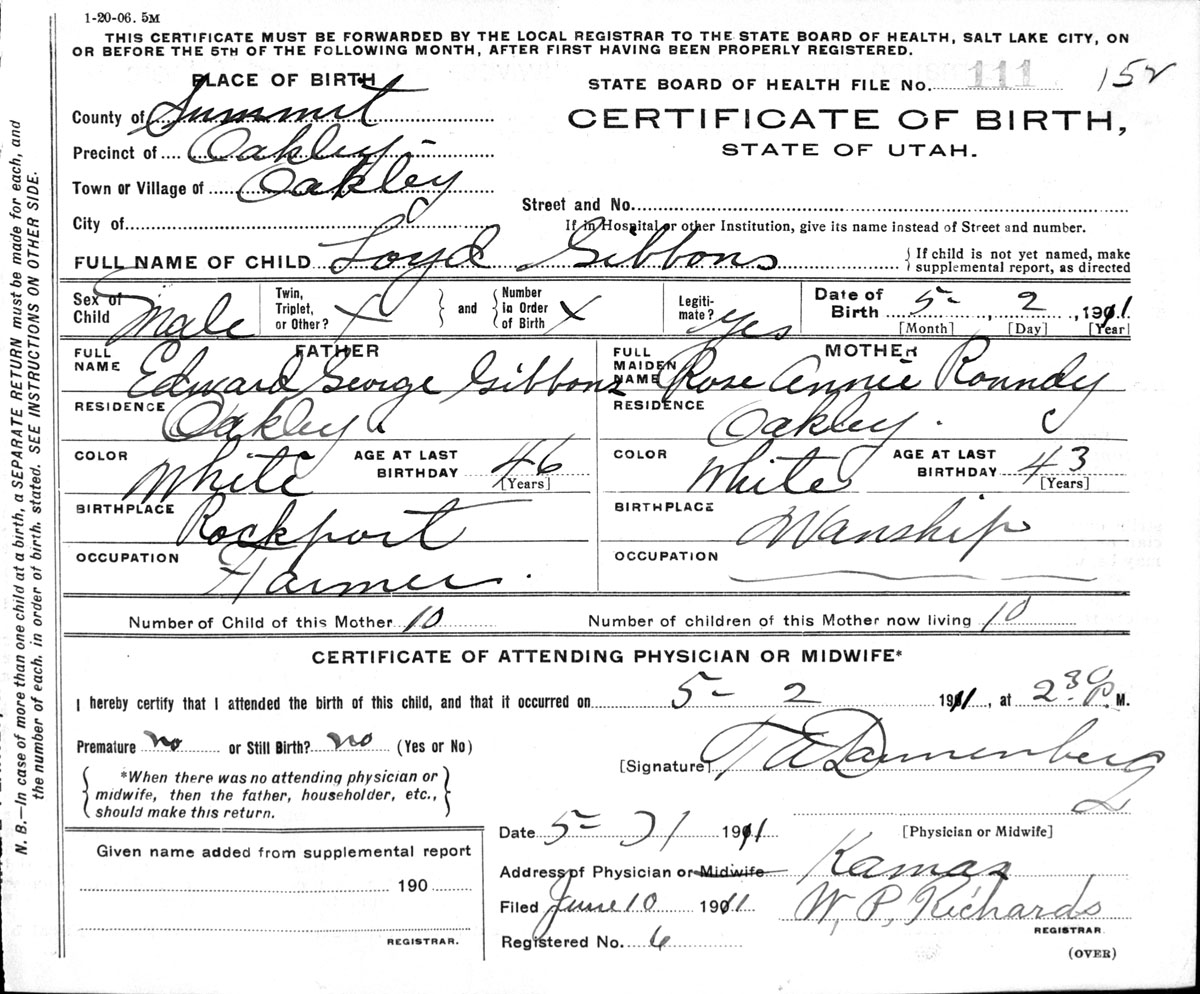 1-20-06. 5M
THIS CERTIFICATE MUST BE FORWARDED BY THE LOCAL REGISTRAR TO THE STATE BOARD OF HEALTH, SALT LAKE CITY, ON
OR BEFORE THE 5TH OF THE FOLLOWING MONTH, AFTER FIRST HAVING BEEN PROPERLY REGISTERED.
PLACE OF BIRTH
STATE BOARD OF HEALTH FILE No. 111 152
County of Summit
CERTIFICATE OF BIRTH,
Precinct of Oakley
STATE OF UTAH.
Town or Village of Oakley
Street and No.
City of
If in Hospital or other Institution, give its name instead of Street and number.
FULL NAME OF CHILD Loyd Gibbons { If child is not yet named, make
supplemental report, as directed
Sex of Child Male
Twin, Triplet, or Other? X } and { Number in Order of Birth X
Legitimate? yes
Date of Birth 5- , 2 , 1911
[Month] [Day] [Year]
FATHER
FULL NAME Edward George Gibbons
RESIDENCE Oakley.
COLOR White AGE AT LAST BIRTHDAY 46 [Years]
BIRTHPLACE Rockport
OCCUPATION Farmer.
MOTHER
FULL MAIDEN NAME Rose Annie Roundy
RESIDENCE Oakley. c
COLOR White AGE AT LAST BIRTHDAY 43 [Years]
BIRTHPLACE Wanship
OCCUPATION
Number of Child of this Mother 10 Number of children of this Mother now living 10
CERTIFICATE OF ATTENDING PHYSICIAN OR MIDWIFE*
I hereby certify that I attended the birth of this child, and that it occurred on 5- 2 1911, at 2 30 P. M.
Premature no or Still Birth? no (Yes or No)
[Signature] T A Dannenberg
{ *When there was no attending physician or
midwife, then the father, householder, etc.,
should make this return. }
Date 5- 31 1911 [Physician or Midwife]
Given name added from supplemental report
Address of Physician or Midwife Kamas
190
Filed June 10 1911 W. P. Richards
REGISTRAR.
REGISTRAR.
Registered No. 6
(OVER)
N. B.—In case of more than one child at a birth, a SEPARATE RETURN must be made for each, and
the number of each, in order of birth, stated. SEE INSTRUCTIONS ON OTHER SIDE.